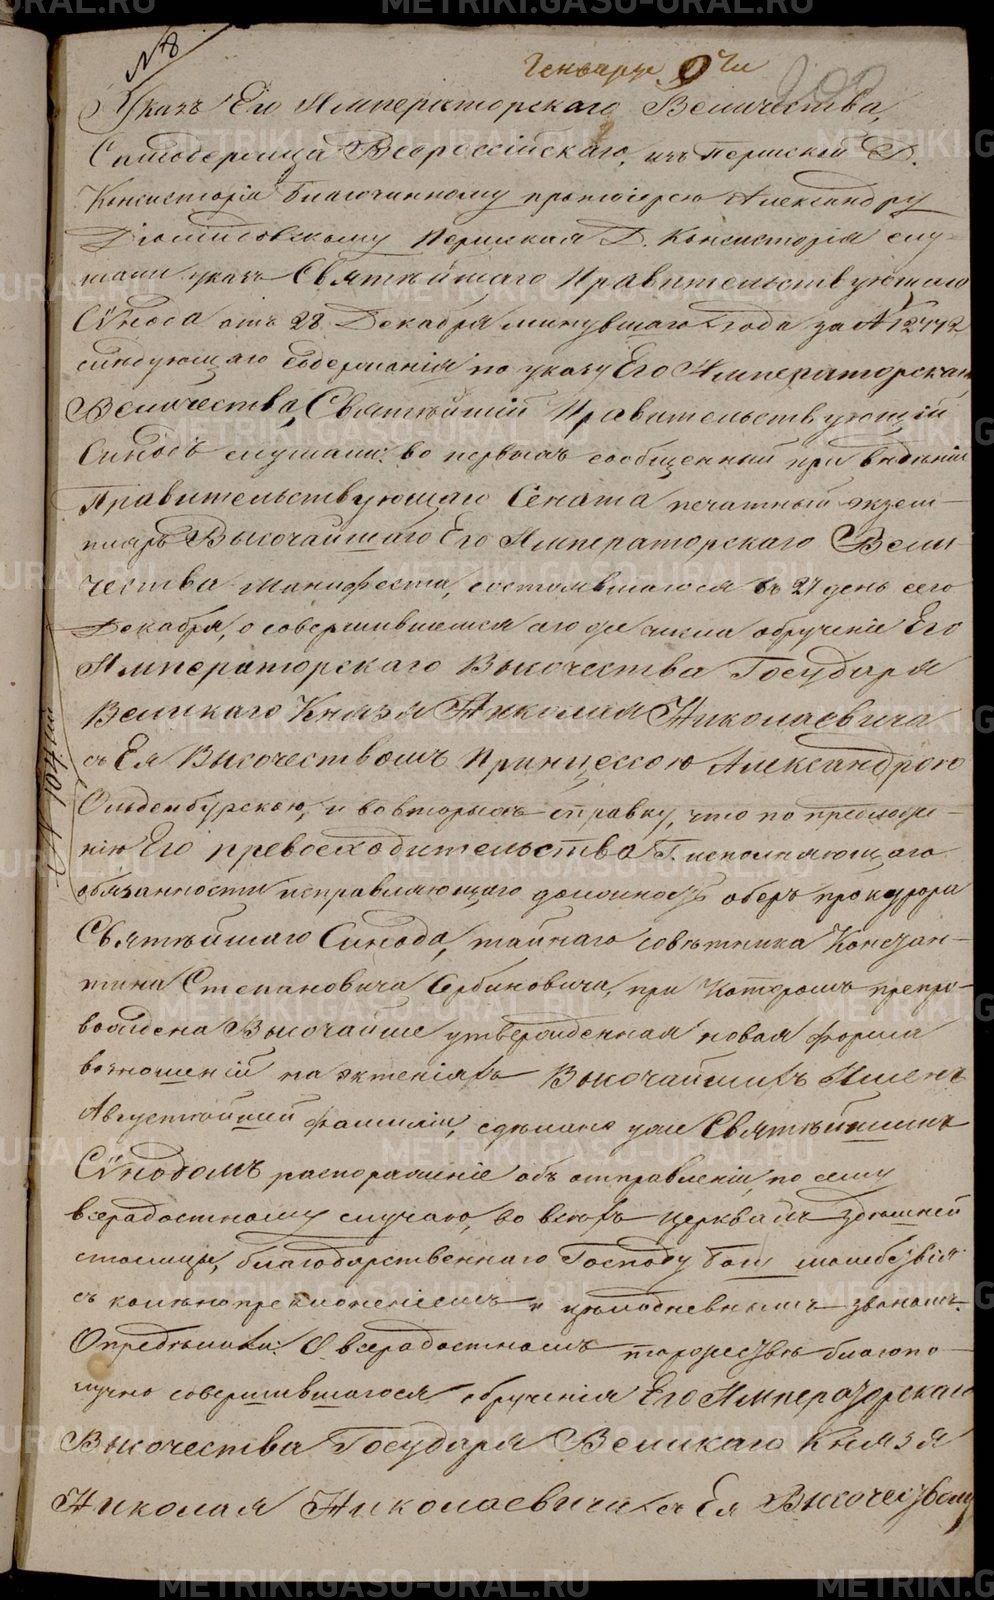 № 8
Генваря 9 дня
Указъ Его Императорскаго Величества,
Самодержца Всероссійскаго, изъ Пермской Д.
Консисторіи благочинному протоіерею Александру
Пермская Д. Консисторія слу-
шали указъ Святѣйшаго Правительствующаго
Сѵнода отъ 28 Декабря минувшаго года за №
слѣдующаго содержанія: по указу Его Императорскаго
Величества, Святѣйшій Правительствующій
Синодъ слушали: во первыхъ сообщенный при вѣдѣніи
Правительствующаго Сената печатный экзем-
пляръ Высочайшаго Его Императорскаго Вели-
чества Манифеста, состоявшагося въ 27 день сего
Декабря, о совершившемся того же числа обрученіи Его
Императорскаго Высочества Государя
Великаго Князя Николая Николаевича
съ Ея Высочествомъ Принцессою Александрою
Ольденбургскою, и во вторыхъ справку, что по предложе-
нію Его превосходительства Г. исполняющаго
обязанности исправляющаго должность оберъ прокурора
Святѣйшаго Синода, тайнаго совѣтника Констан-
тина Степановича Сербиновича, при которомъ препро-
вождена Высочайше утвержденная новая форма
возношеній на эктеніяхъ Высочайшихъ Именъ
Августѣйшей фамиліи, сдѣлано уже Святѣйшимъ
Сѵнодомъ распоряженіе объ отправленіи, по сему
всерадостному случаю, во всѣхъ церквахъ здѣшней
столицы, благодарственнаго Господу Богу молебствія
съ колѣнопреклоненіемъ и цѣлодневнымъ звономъ.
Опредѣлили: О всерадостномъ торжествѣ благопо-
лучно совершившагося обрученія Его Императорскаго
Высочества Государя Великаго Князя
Николая Николаевича съ Ея Высочествомъ
METRIKI.GASO-URAL.RU